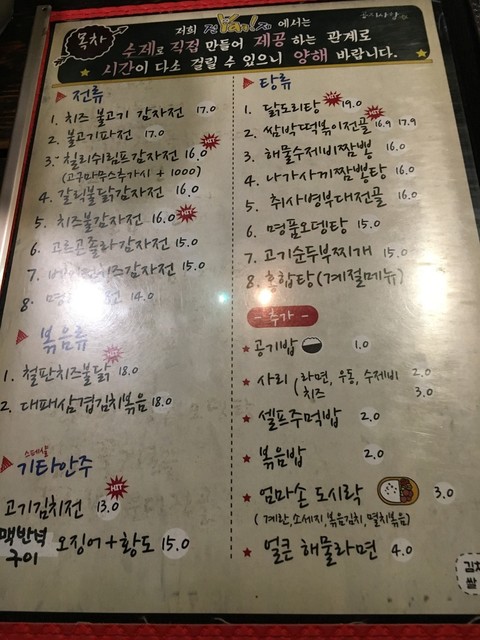 목차
저희 전 에서는
수제로 직접 만들어 제공 하는 관계로
시간이 다소 걸릴 수 있으니 양해 바랍니다.
전류
1. 치즈 불고기 감자전 17.0
2. 불고기파전 17.0
3. 칠리쉬림프감자전 16.0
(고구마무스추가시 + 1000)
4. 갈릭불닭감자전 16.0
5. 치즈불감자전 16.0
6. 고르곤졸라감자전 15.0
7. 치즈감자전 15.0
8. 14.0
볶음류
1. 철판치즈불닭 18.0
2. 대패삼겹김치볶음 18.0
스페셜
기타안주
고기김치전 13.0
맥반석
구이 오징어+황도 15.0
탕류
1. 닭도리탕 19.0
2. 쌀박떡볶이전골 16.9 17.9
3. 해물수제비짬뽕 16.0
4. 나가사끼짬뽕탕 16.0
5. 취사병부대전골 16.0
6. 명품오뎅탕 15.0
7. 고기순두부찌개 15.0
8. 홍합탕(계절메뉴)
- 추가 -
공기밥 1.0
사리 (라면, 우동, 수제비 2.0
치즈 3.0
셀프주먹밥 2.0
볶음밥 2.0
엄마손 도시락 3.0
(계란, 소세지, 볶음김치, 멸치볶음)
얼큰 해물라면 4.0